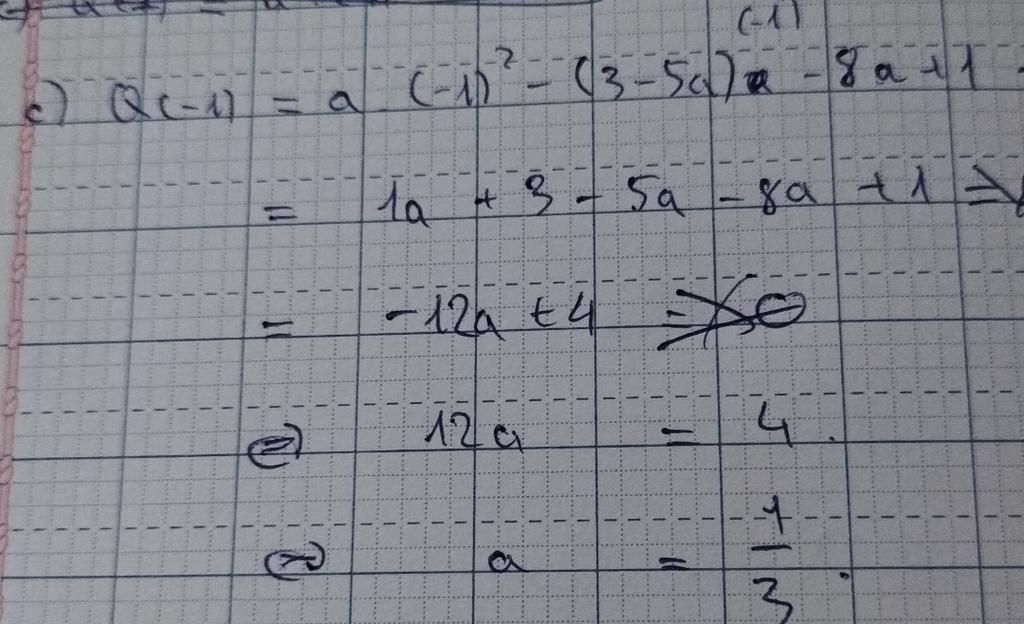 (-1)
c) Q(-1) = a (-1)² - (3 - 5a) - 8a + 1
= 1a + 3 - 5a - 8a + 1 =>
= -12a + 4
⇔ 12a = 4.
⇔ a = 1/3.